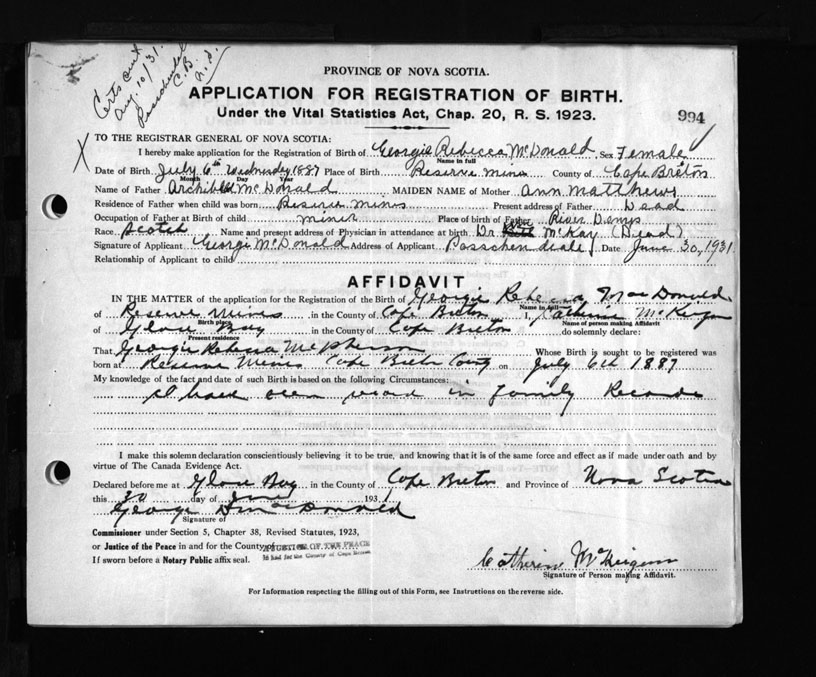 Certs out
Aug. 10/31.
Passchendale
C.B.
PROVINCE OF NOVA SCOTIA.
APPLICATION FOR REGISTRATION OF BIRTH.
Under the Vital Statistics Act, Chap. 20, R. S. 1923.
994
X
TO THE REGISTRAR GENERAL OF NOVA SCOTIA:
I hereby make application for the Registration of Birth of Georgie Rebecca McDonald Sex Female
Name in full
Date of Birth July 6th Wednesday 1887 Place of Birth Reserve Mines County of Cape Breton
Month Day Year
Name of Father Archibald McDonald MAIDEN NAME of Mother Ann Matthews
Residence of Father when child was born Reserve Mines Present address of Father Dead
Occupation of Father at Birth of child miner Place of birth of Father River Denys
Race Scotch Name and present address of Physician in attendance at birth Dr McKay (Dead)
Signature of Applicant Georgie McDonald Address of Applicant Passchendeale Date June 30, 1931
Relationship of Applicant to child
AFFIDAVIT
IN THE MATTER of the application for the Registration of the Birth of Georgie Rebecca MacDonald
Name in full
of Reserve Mines in the County of Cape Breton I, Catherine McKeigan
Birth place Name of person making Affidavit
of Glace Bay in the County of Cape Breton do solemnly declare:
Present residence
That Georgie Rebecca McPherson Whose Birth is sought to be registered was
born at Reserve Mines Cape Breton County on July 6th 1887
My knowledge of the fact and date of such Birth is based on the following Circumstances:
I have seen in family Records
I make this solemn declaration conscientiously believing it to be true, and knowing that it is of the same force and effect as if made under oath and by
virtue of The Canada Evidence Act.
Declared before me at Glace Bay in the County of Cape Breton and Province of Nova Scotia
this 30 day of June 193
George D MacDonald
Signature of
Commissioner under Section 5, Chapter 38, Revised Statutes, 1923,
or Justice of the Peace in and for the County of JUSTICE OF THE PEACE
In and for the County of Cape Breton
If sworn before a Notary Public affix seal.
Catherine McKeigan
Signature of Person making Affidavit.
For Information respecting the filling out of this Form, see Instructions on the reverse side.